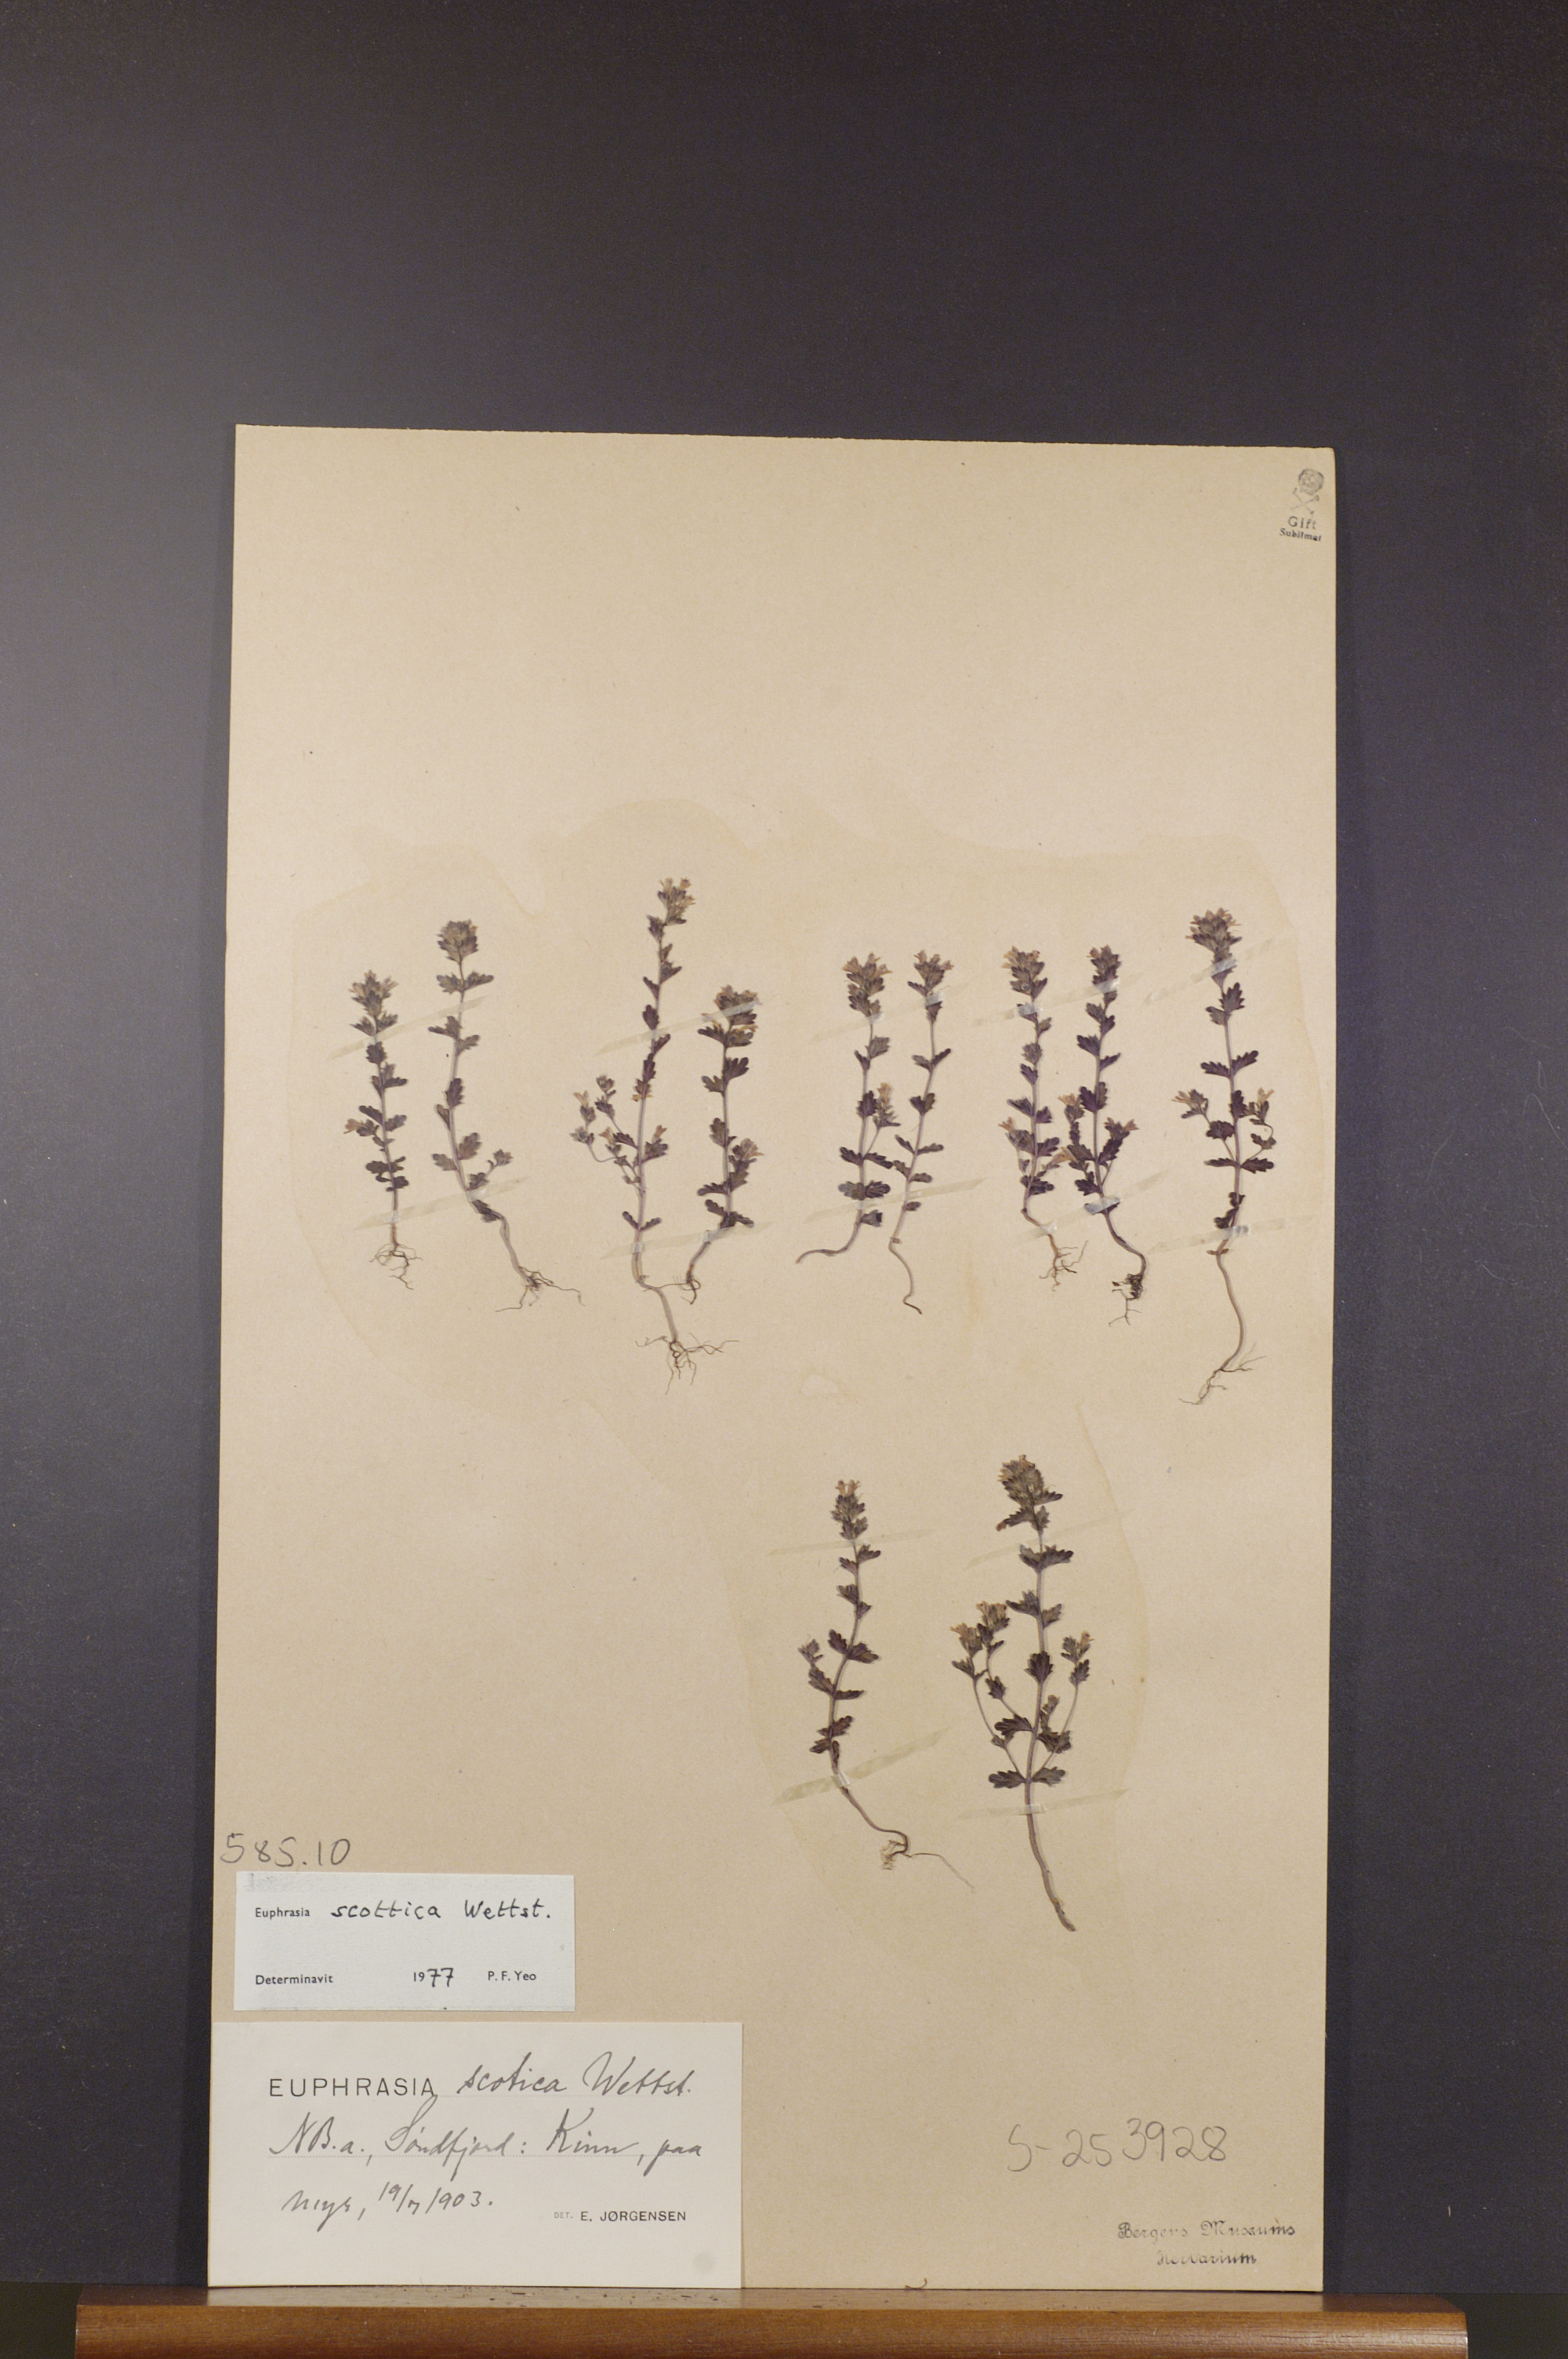 Gift
Sublimat
585.10
Euphrasia scottica Wettst.
Determinavit 1977 P. F. Yeo
EUPHRASIA scotica Wettst.
NB.a., Söndfjord: Kinn, paa
myr, 19/7 1903.
DET. E. JØRGENSEN
S-253928
Bergens Museums
Herbarium